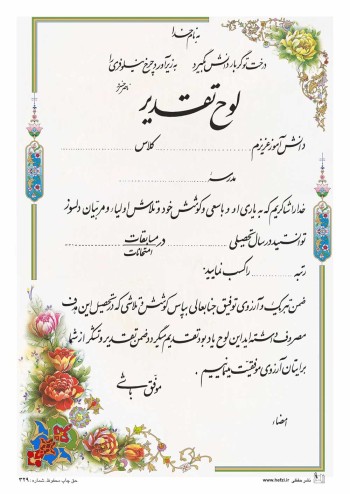 به نام خدا
درخت تو گر بار دانش بگیرد به زیر آوری چرخ نیلوفری را
ناصر خسرو
لوح تقدیر
دانش آموز عزیزم ........ کلاس ........
مدرسه ........
خدا را شاکریم که به یاری او و با سعی و کوشش خود و تلاش اولیاء و مربیان دلسوز
توانستید در سال تحصیلی ........ در مسابقات ........
امتحانات
رتبه ........ را کسب نمایید.
ضمن تبریک و آرزوی توفیق جنابعالی بپاس کوشش و تلاشی که در تحصیل این هدف
مصروف داشته اید این لوح یادبود تقدیم میگردد ضمن تقدیر و تشکر از شما
برایتان آرزوی موفقیت مینماییم.
موفق باشی
امضاء
حق چاپ محفوظ، شماره: ۳۲۹
www.hafzi.ir